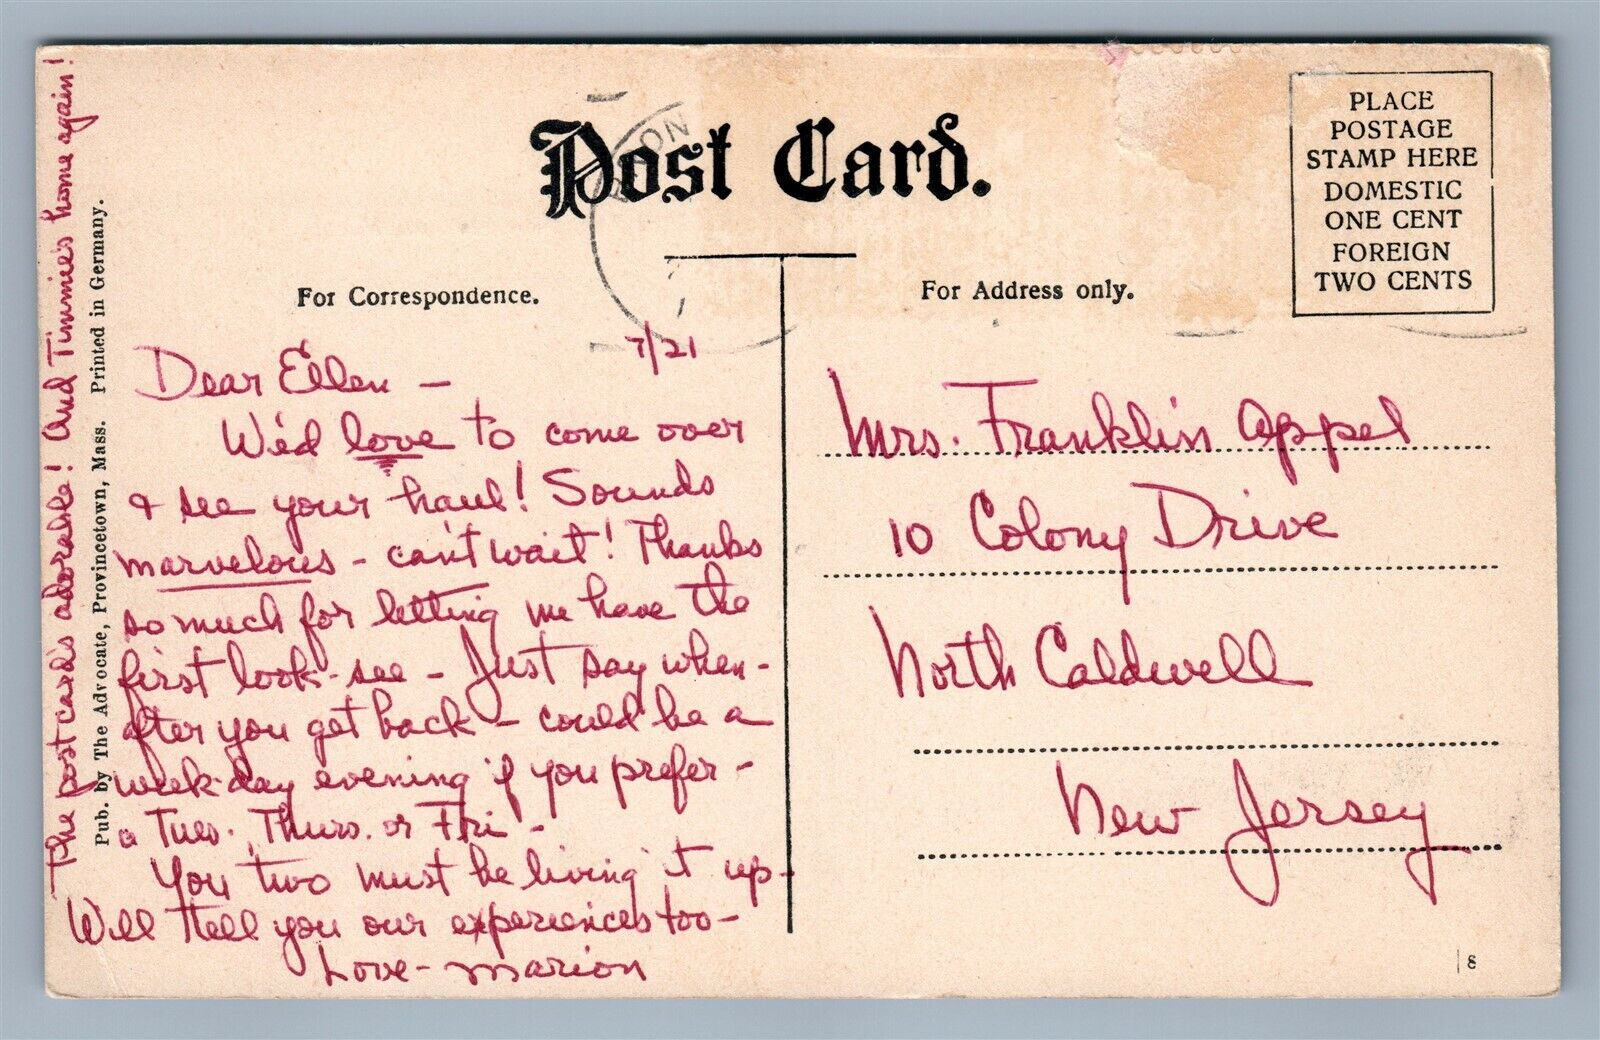 Post Card.
PLACE
POSTAGE
STAMP HERE
DOMESTIC
ONE CENT
FOREIGN
TWO CENTS
For Correspondence.
For Address only.
7/21
Dear Ellen -
We'd love to come over
& see your haul! Sounds
marvelous - can't wait! Thanks
so much for letting me have the
first look-see - Just say when -
after you get back - could be a
week-day evening if you prefer -
a Tues., Thurs. or Fri -
You two must be living it up -
Will tell you our experiences too -
Love - Marion
The post card's adorable! And Timmie's home again!
Pub. by The Advocate, Provincetown, Mass. Printed in Germany.
Mrs. Franklin Appel
10 Colony Drive
North Caldwell
New Jersey
8